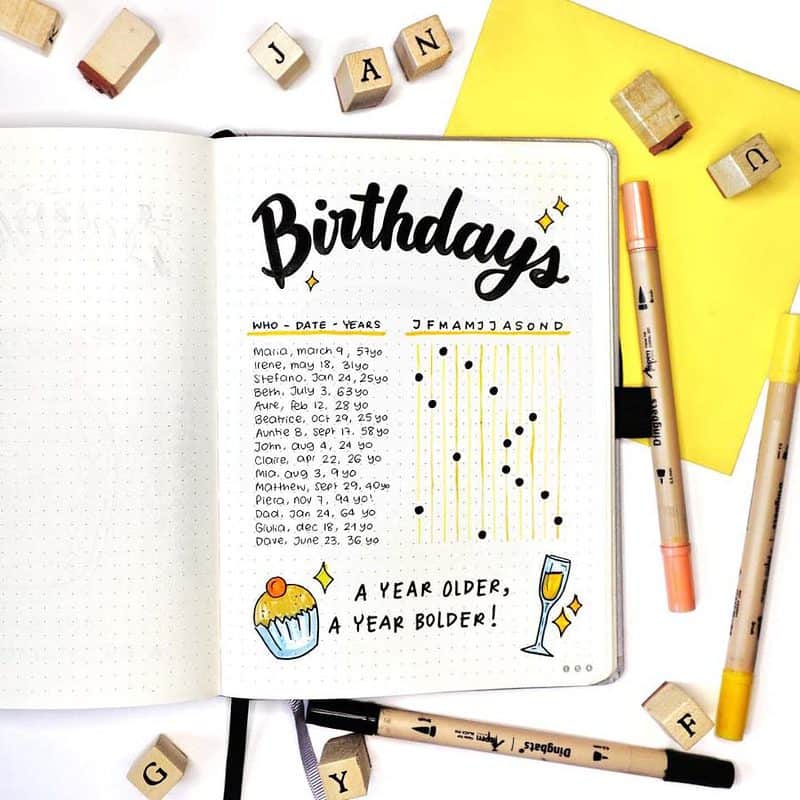 J
A
N
U
Birthdays
WHO - DATE - YEARS
J F M A M J J A S O N D
Maria, march 9, 57yo
Irene, may 18, 31yo
Stefano, Jan 24, 25yo
Beth, July 3, 63yo
Aure, feb 12, 28 yo
Beatrice, oct 29, 25 yo
Auntie B, sept 17, 58yo
John, aug 4, 24 yo
Claire, apr 22, 26 yo
Mia, aug 3, 9 yo
Matthew, sept 29, 40yo
Piera, nov 7, 94 yo!
Dad, Jan 24, 64 yo
Giulia, dec 18, 21yo
Dave, June 23, 36 yo
A YEAR OLDER,
A YEAR BOLDER!
Dingbats
Brush
Dingbats
F
G
Y